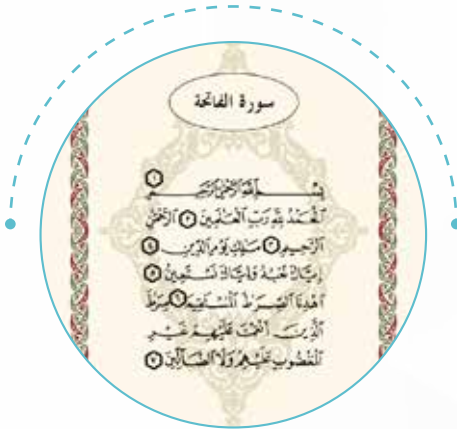 سورة الفاتحة
بِسْمِ ٱللَّهِ ٱلرَّحْمَٰنِ ٱلرَّحِيمِ ١
ٱلْحَمْدُ لِلَّهِ رَبِّ ٱلْعَٰلَمِينَ ٢ ٱلرَّحْمَٰنِ
ٱلرَّحِيمِ ٣ مَٰلِكِ يَوْمِ ٱلدِّينِ ٤
إِيَّاكَ نَعْبُدُ وَإِيَّاكَ نَسْتَعِينُ ٥
ٱهْدِنَا ٱلصِّرَٰطَ ٱلْمُسْتَقِيمَ ٦ صِرَٰطَ
ٱلَّذِينَ أَنْعَمْتَ عَلَيْهِمْ غَيْرِ
ٱلْمَغْضُوبِ عَلَيْهِمْ وَلَا ٱلضَّآلِّينَ ٧